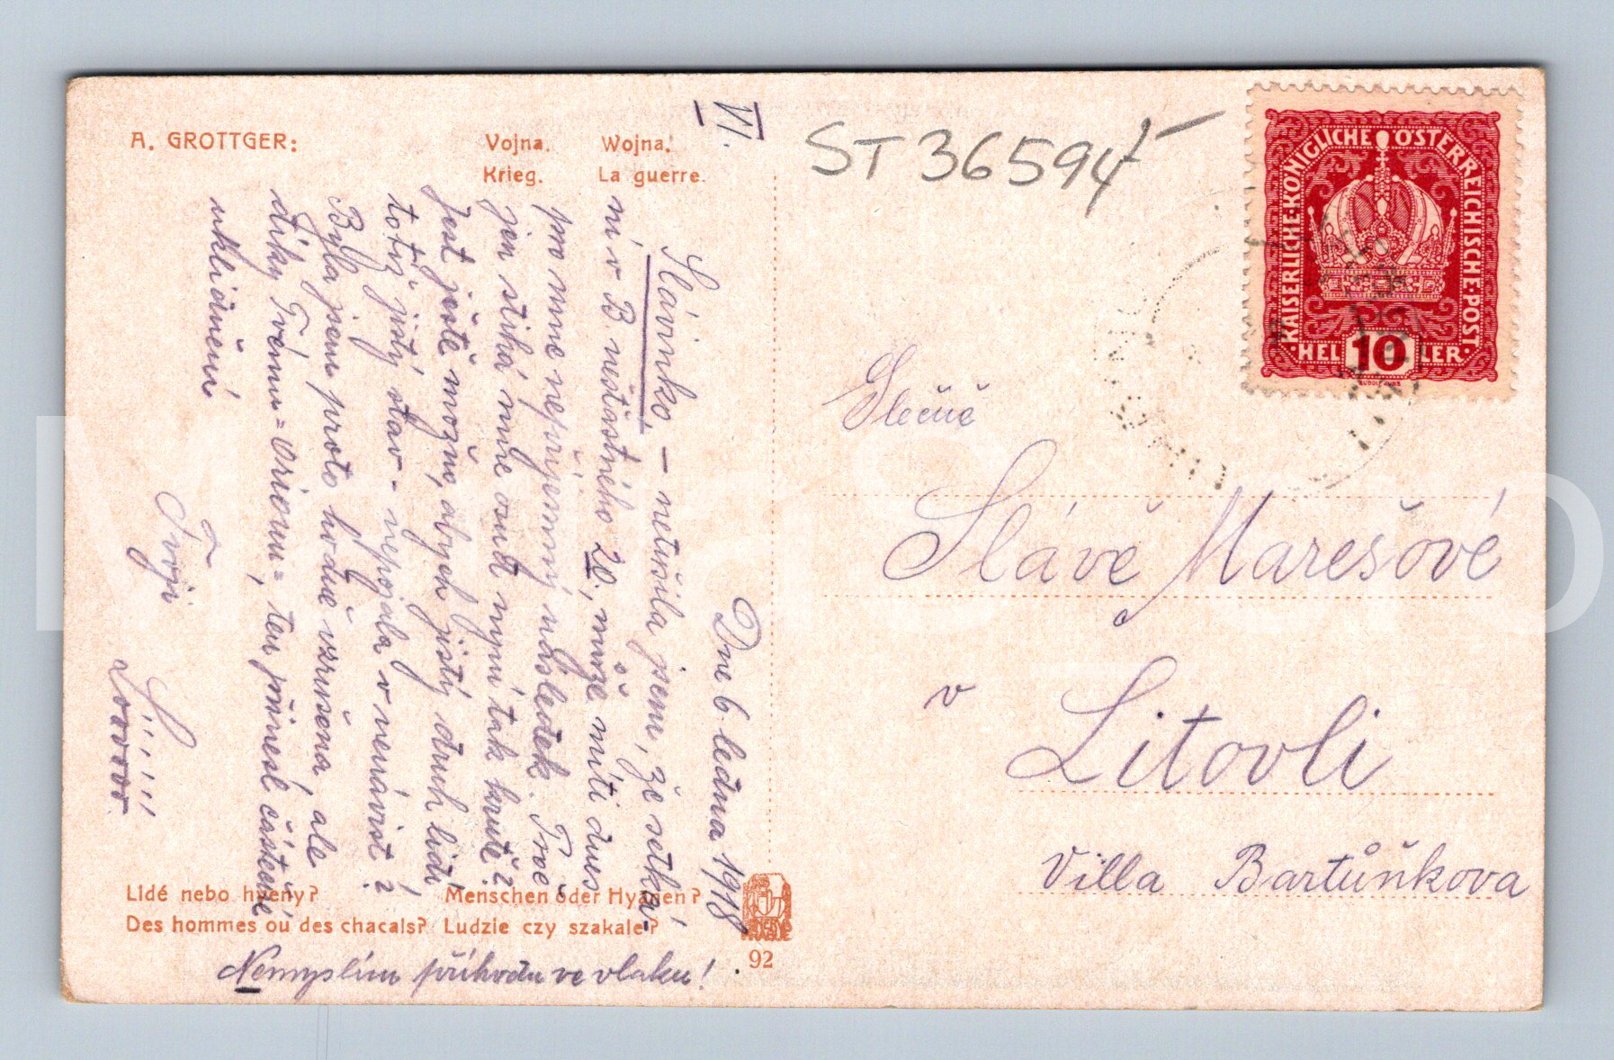 A. GROTTGER:
Vojna. Wojna.
Krieg. La guerre.
VI.
ST 36594
KAISERLICHE·KÖNIGLICHE ÖSTERREICHISCHE·POST
HELLER
10
Dne 6. ledna 1918
Slávinko, – netušila jsem, že setká-
ní v B nešťastného 20, může míti dnes
pro mne nepříjemný následek. Proč
jen stíhá mne osud nyní tak krutě?
Jest ještě možno, abych jistý druh lidí
totiž jistý stav – nepojala v nenávist?
Byla jsem proto hodně vzrušena, ale
díky Tvému = Orionu =, ten přinesl částečné
uklidnění
Tvoji
Nemyslím příhodu ve vlaku!
Slečně
Slávě Marešové
v
Litovli
Villa Bartůňkova
Lidé nebo hyeny? Menschen oder Hyänen?
Des hommes ou des chacals? Ludzie czy szakale?
92